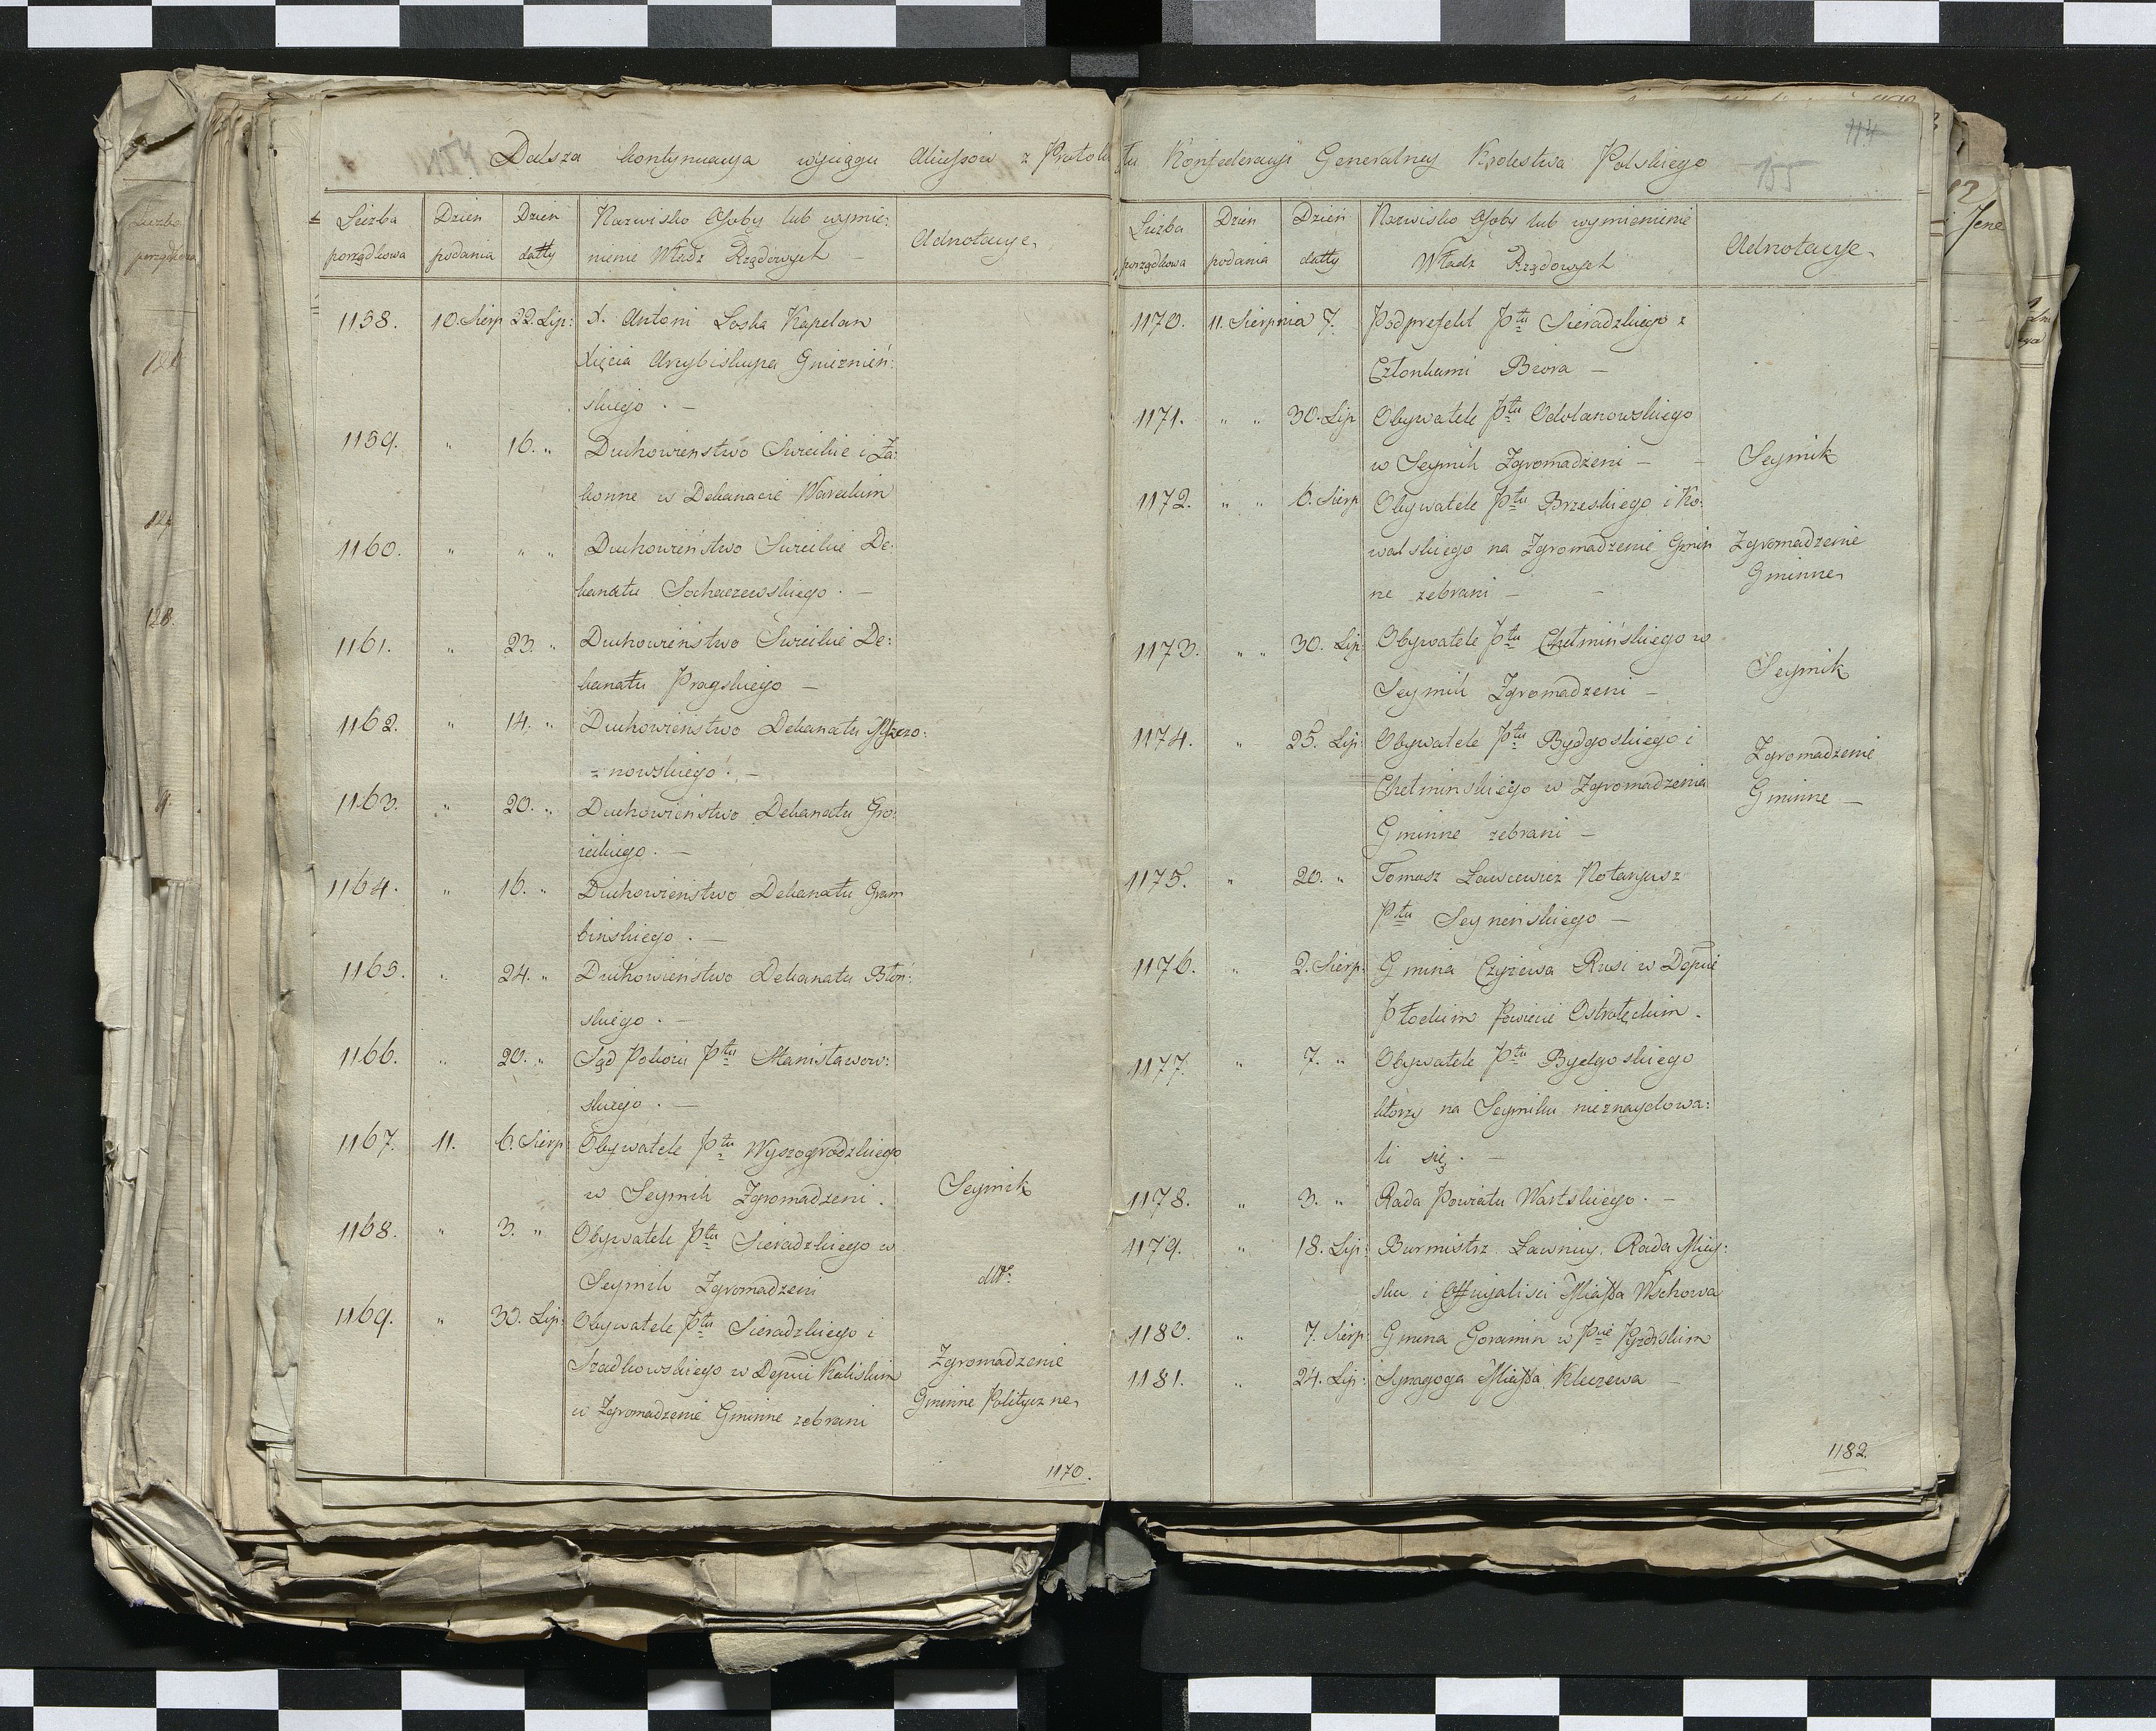 Dalsza kontynuacya wyciągu Akcessow z Protoku Konfederacyi Generalney Krolestwa Polskiego
114
155
Liczba porządkowa
Dzien podania
Dzien datty
Nazwisko Osoby lub wymie:
nienie Władz Rządowych —
Adnotacye
1158. 10. Sierp 22. Lip: X. Antoni Loska Kapelan
Xięcia Arcybiskupa Gnieznień:
skiego . —
1159. " 16. " Duchowieństwo Swieckie i Za:
konne w Dekanacie Wareckim
1160. " " " Duchowieństwo Swieckie De:
kanatu Sochaczewskiego . —
1161. " 23. " Duchowieństwo Swieckie De:
kanatu Pragskiego —
1162. " 14. " Duchowieństwo Dekanatu Mszczo:
= nowskiego . —
1163. " 20. " Duchowieństwo Dekanatu Gro:
ieckiego . —
1164. " 16. " Duchowieństwo Dekanatu Gram
binskiego . —
1165. " 24. " Duchowieństwo Dekanatu Błoń:
skiego . —
1166. " 20. " Sąd Pokoiu Ptu Stanisławow:
skiego . —
1167. 11. 6. Sierp Obywatele Ptu Wyszogrodzkiego
w Seymik Zgromadzeni . Seymik
1168. " 3. " Obywatele Ptu Sieradzkiego w
Seymik Zgromadzeni dtto
1169. " 30. Lip: Obywatele Ptu Sieradzkiego i
Szadkowskiego w Depcie Kaliskim Zgromadzenie
w Zgromadzenie Gminne zebrani Gminne Polityczne
1170.
Liczba porządkowa
Dzień podania
Dzień datty
Nazwisko Osoby lub wymienienie
Władz Rządowych
Adnotacye
1170. 11. Sierpnia 7. Podprefekt Ptu Sieradzkiego z
Członkami Biora —
1171. " " 30. Lip Obywatele Ptu Odolanowskiego
w Seymik Zgromadzeni — Seymik
1172. " " 6. Sierp Obywatele Ptu Brzeskiego i Ko:
walskiego na Zgromadzenie Gmin Zgromadzenie
ne zebrani — Gminne
1173. " " 30. Lip: Obywatele Ptu Chełmińskiego w
Seymik Zgromadzeni — Seymik
1174. " 25. Lip: Obywatele Ptu Bydgoskiego i Zgromadzenie
Chełminskiego w Zgromadzenia Gminne —
Gminne zebrani —
1175. " 20. " Tomasz Ławcewicz Notaryusz
Ptu Seyneńskiego —
1176. " 2. Sierp: Gmina Czyżewa Rusi w Depcie
Płockim Powiecie Ostrołęckim .
1177. " 7. " Obywatele Ptu Bydgoskiego
ktorzy na Seymiku nieznaydowa:
li się . —
1178. " 3. " Rada Powiatu Wartskiego . —
1179. " 18. Lip: Burmistrz Ławnicy, Rada Miey:
ska i Officyalisci Miasta Wschowa
1180. " 7. Sierp: Gmina Goranin w Pcie Pyzdrskim
1181. " 24. Lip: Synagoga Miasta Kleczewa —
1182.